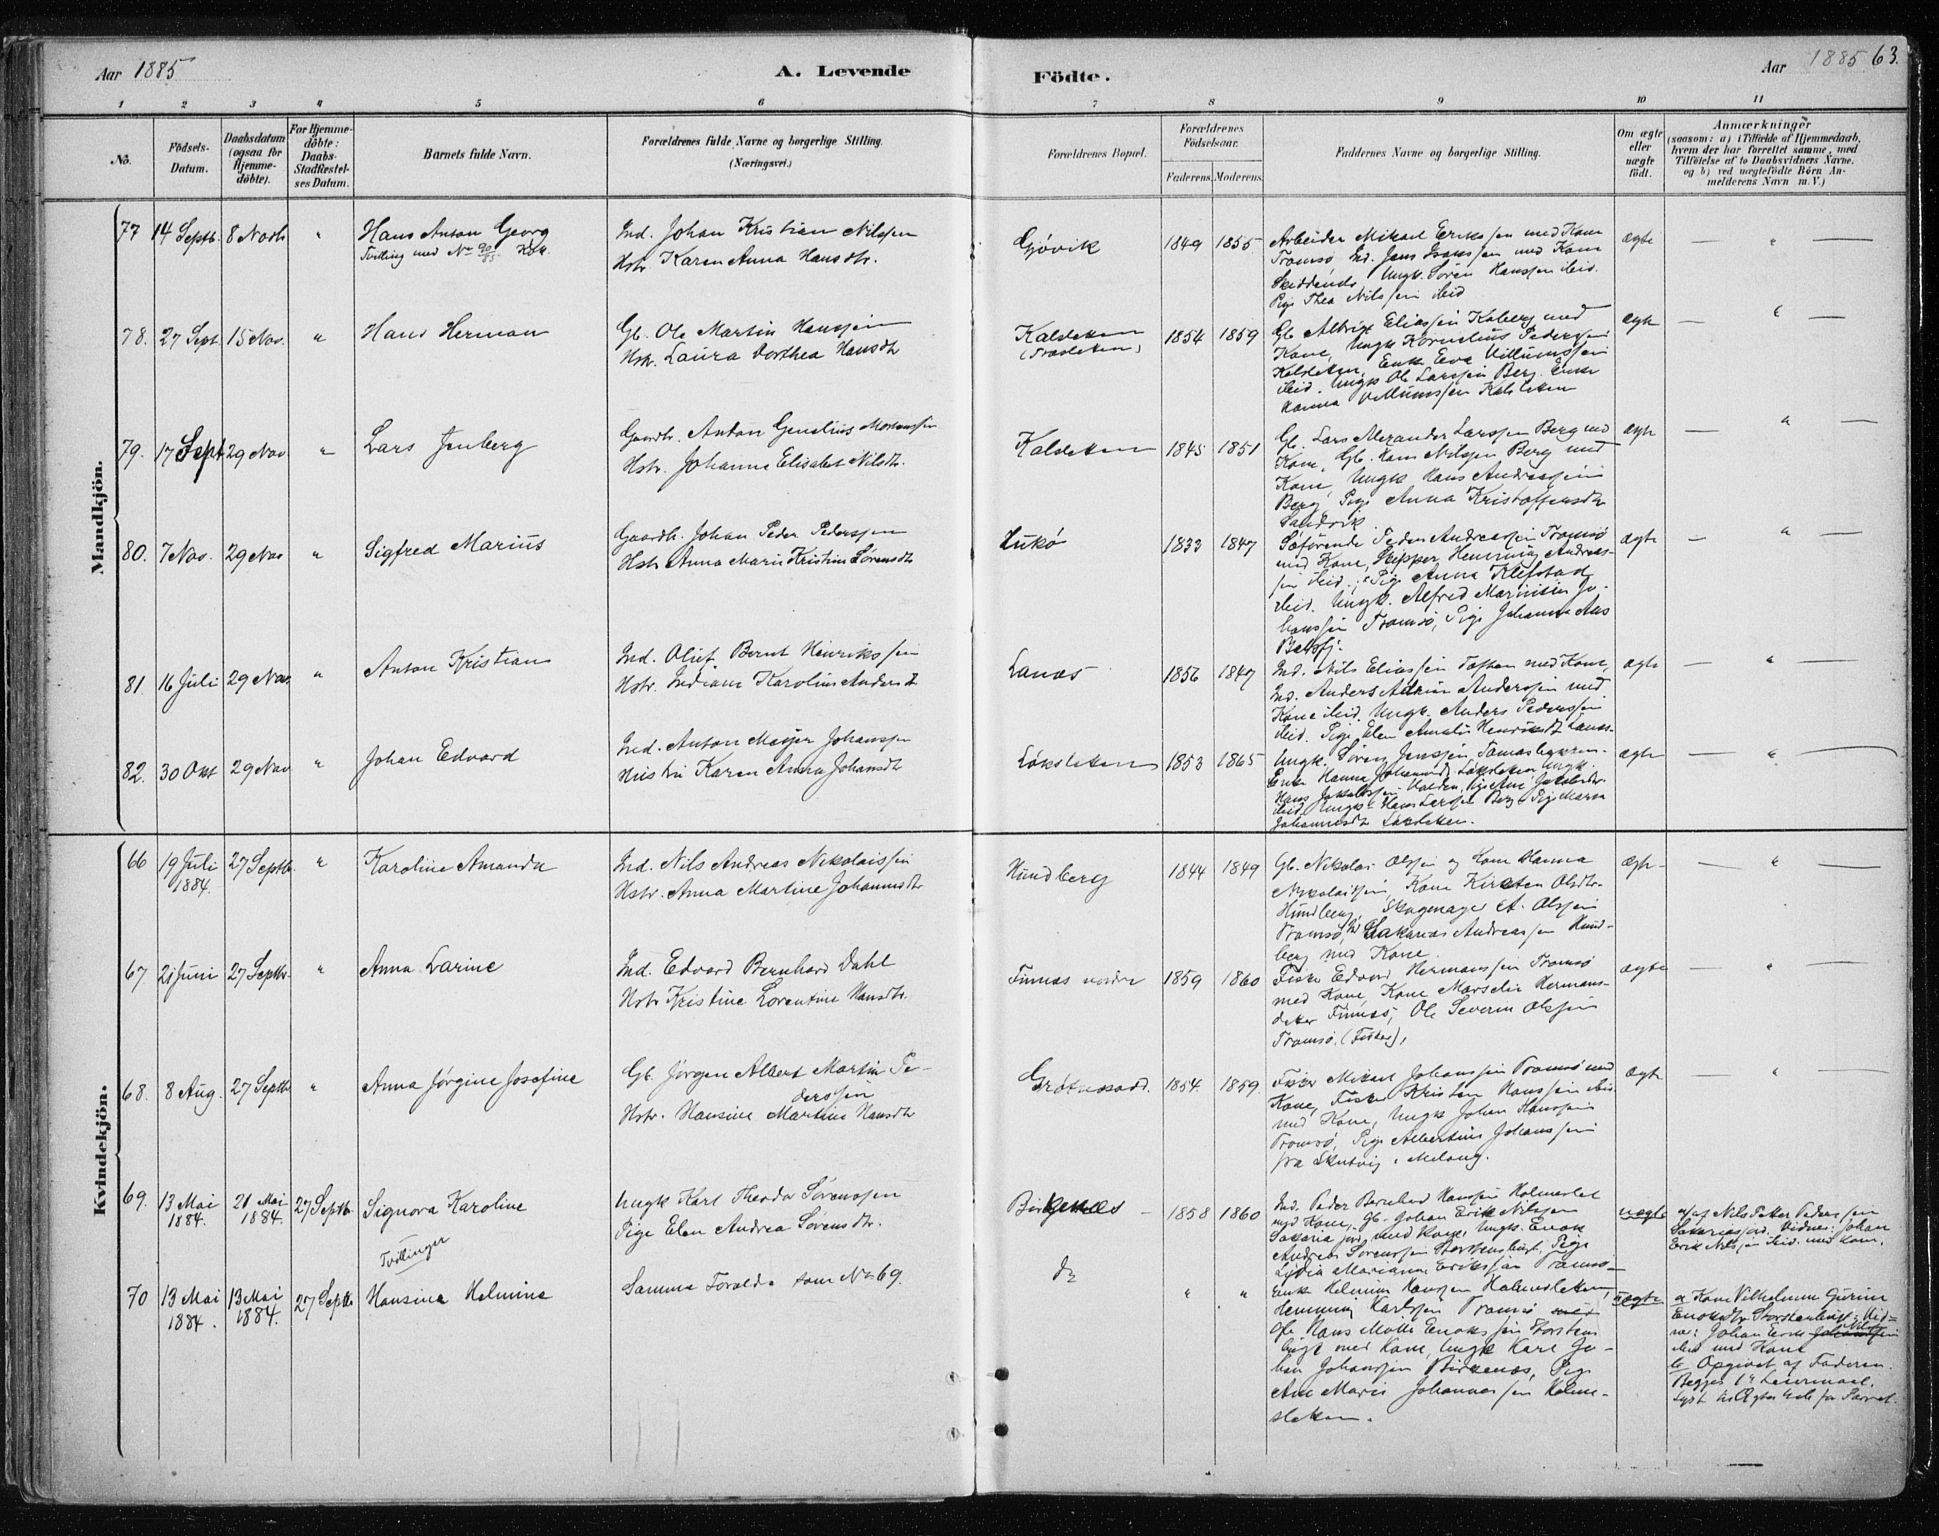 Aar 1885
A. Levende
Födte.
Aar 1885 63.
1 2 3 4 5 6 7 8 9 10 11
No.
Födsels-Datum.
Daabsdatum (ogsaa for Hjemme-döbte).
For Hjemme-döbte: Daabs-Stadfæstel-ses Datum.
Barnets fulde Navn.
Forældrenes fulde Navne og borgerlige Stilling. (Næringsvei.)
Forældrenes Bopæl.
Forældrenes Födselsaar.
Faderens. Moderens.
Faddernes Navne og borgerlige Stilling.
Om ægte eller uægte födt.
Anmærkninger
(saasom: a) i Tilfælde af Hjemmedaab,
hvem der har forrettet samme, med
Tilföielse af to Daabsvidners Navne.
og b) ved uægtefödte Börn An-
melderens Navn m. V.)
Mandkjön.
77 14 Septb. 8 Novb " Hans Anton Georg
Tvilling med No 90/85
Ind. Johan Kristian Nilssen
Hstr. Karen Anna Hansdtr.
Gjövik 1849 1855
Arbeider Mikael Erikssen med Kone
Tromsø Ind. Jens Isakssen med Kone
Ungk. Sören Hanssen ibid.
Pige Thea Nilssen ibid
ægte — " —
78. 27 Sept. 15 Nov. " Hans Herman
Gb. Ole Martin Hanssen
Hstr. Laura Dorthea Hansdtr
Kalsletten 1854 1859
Gb. Albrigt Eliassen Koberg med
Kone, Ungk Kornelius Pederssen
Kalsletten, Enke Eva Villumssen
ibid. Ungk Ole Larssen Berg. Enke
Hanna Villumssen Kalsletten
ægte — " —
79. 17 Sept 29 Nov " Lars Jenberg
Gaardbr. Anton Genelius Mortenssen
Hstr. Johanna Elisabet Nilsdtr.
Kalsletten 1845 1851
Gb. Lars Alexander Larssen Berg med
Kone, Gb. Hans Nilssen Berg med
Kone, Ungk Hans Andreassen
Berg, Pige Anna Kristoffersdtr
Sandvik
ægte — " —
80. 7 Nov. 29 Nov " Sigfred Marius
Gaardb. Johan Peder Pederssen
Hstr Anna Marie Kristine Sörensdtr
1833 1847
Söførende Peder Andreassen Tromsø
med Kone, Skipper Henning Andreas-
sen ibid., Pige Anna Klefstad
ibid. Ungk. Alfred Marinius Jo-
hanssen Tromsø, Pige Johanna Aas
Balsfj.
ægte — " —
81. 16 Juli 29 Nov. " Anton Kristian
Ind. Oluf Bernt Henrikssen
Hstr. Indiane Karoline Andersdt
Lanæs 1856 1847
Ind. Nils Eliassen Toften med Kone
Ind. Anders Anderssen med
Kone ibid. Ungk. Anders Pederssen
ibid. Pige Elen Amalie Henriksdt Lanæs
ægte — " —
82. 30 Okt 29 Nov " Johan Edvard
Ind. Anton Meyer Johanssen
Hustru Karen Anna Johansdt
Löksletten 1853 1865
Ungk. Sören Jenssen
Enke Hanna Johannesdt Löksletten Ungk.
Hans Jakobssen
ibid Ungk Hans Larssen Berg Pige Maren
Johannesdt Löksletten.
ægte — " —
Kvindekjön.
66 19 Juli 1884. 27 Septb. " Karoline Amanda
Ind. Nils Andreas Nikolaissen
Hstr. Anna Martine Johannesdtr
Hundberg 1844 1849
Gb. Nikolai Olssen og Kone Hanna
Nikolaissen, Kone Kirsten Olsdtr.
Hundberg, Skogenager A. Olssen
Tromsø, Ind Sakarias Andreassen Hund-
berg med Kone.
ægte — " —
67 21 Juni 27 Septb. " Anna Larine
Ind. Edvard Bernhard Dahl
Hstr Kristine Lorentine Hansdtr.
Finnæs nordre 1859 1860
Fisker Edvard Hermanssen Tromsø
med Kone, Kone Marselie Hermans-
datter Finnæs, Ole Severin Olssen
Tromsø. (Fisker),
ægte — " —
68. 8 Aug. 27 Septb " Anna Jørgine Josefine
Gb. Jørgen Albert Martin Pe-
derssen
Hstr. Hansine Martine Hansdtr
1854. 1859.
Fisker Mikael Johanssen Tromsø med
Kone, Fisker Kristen Hanssen ibid
med Kone, Ungk Johan Hanssen
Tromsø, Pige Albertine Johanssen
fra Skutvig i Malang.
ægte — " —
69. 13 Mai 1884. 21 Mai 1884. 27 Septb. Signora Karoline
Tvillinger
Ungk Karl Theodor Sörenssen
Pige Elen Andrea Sörensdtr.
Birkenæs — 1858 1860
Ind. Peder Bernhard Hanssen Holmeslet
med Kone, Gb. Johan Erik Nilssen
med Kone, Ungk. Enok
Andreas Sörenssen Storstenbugt, Pige
Lydia Marianne Erikssen Tromsø
uægte
a/ af Nils Peter Pederssen
Vidner: Johan
Erik Nilssen ibid. med Kone.
70 13 Mai 1884. 13 Mai 1884. 27 Septb. Hansina Helmine
Samme Forældre som No 69.
do " "
Enke Helmine Hanssen Holmesletten,
Henning Karlssen Tromsø
Hans Möller Enokssen Storstens
bugt med Kone, Ungk Karl Jo-
han Johanssen Birkenæs, Pige
Ane Marie Johannessen Holme-
sletten.
uægte
a Kone Vilhelmine Gurine
Enoksdtr Storstenbugt. Vid-
ner: Johan Erik Nils
ibid med Kone
b. Opgivet af Faderen.
Begges 1ste Leiermaal.